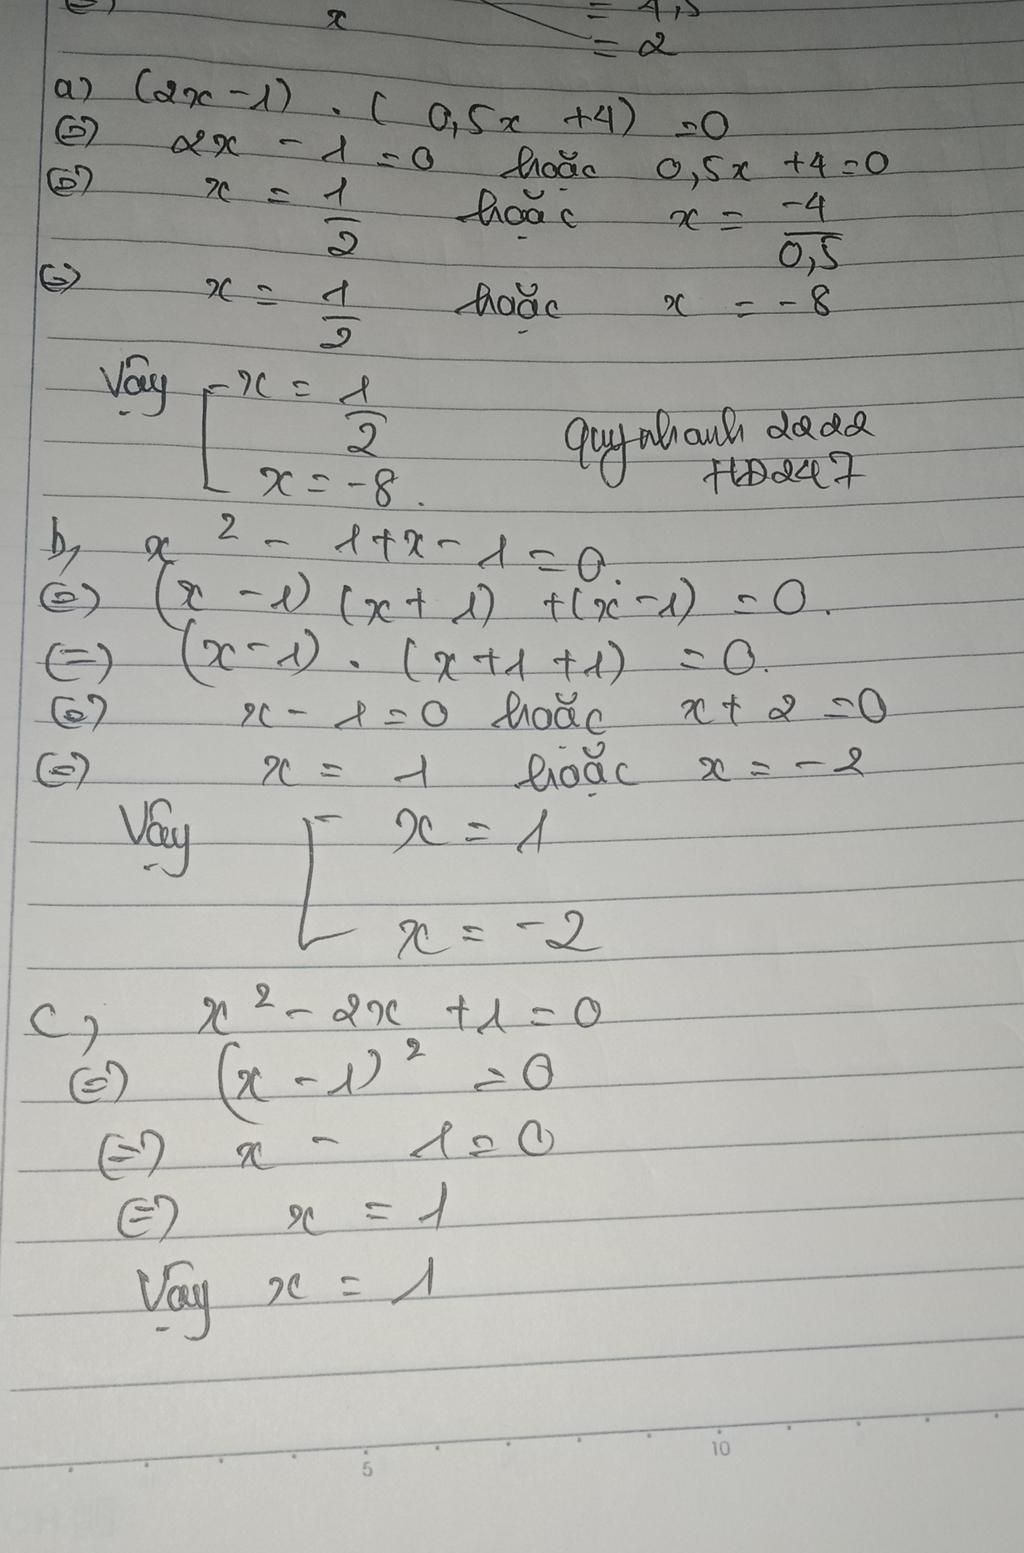 x = 4,5
= 2
a) (2x - 1) . ( 0,5x + 4) = 0
(=) 2x - 1 = 0 hoặc 0,5x + 4 = 0
(=) x = 1/2 hoặc x = -4/0,5
(=) x = 1/2 hoặc x = -8
Vậy [ x = 1/2
x = -8.
Quynhanh 2222
HD247
b, x² - 1 + x - 1 = 0.
(=) (x - 1) (x + 1) + (x - 1) = 0.
(=) (x - 1) . (x + 1 + 1) = 0.
(=) x - 1 = 0 hoặc x + 2 = 0
(=) x = 1 hoặc x = -2
Vậy [ x = 1
x = -2
c, x² - 2x + 1 = 0
(=) (x - 1)² = 0
(=) x - 1 = 0
(=) x = 1
Vậy x = 1
5 10